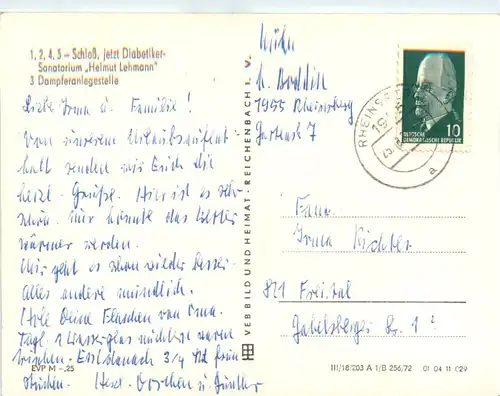 1, 2, 4, 5 – Schloß, jetzt Diabetiker-
Sanatorium „Helmut Lehmann"
3 Dampferanlegestelle
Liebe Irma u. Familie!
Von unserem Urlaubsaufent-
halt senden wir Euch die
herzl. Grüße. Hier ist es sehr
schön, nur könnte das Wetter
wärmer werden.
Mir geht es schon wieder besser.
Alles andere mündlich.
Hole Deine Flaschen von Oma.
Tägl. 1 Wasserglas nüchtern
Erst danach 3/4 Std
Herzl. Dorchen u. Günther
EVP M –,25
VEB BILD UND HEIMAT · REICHENBACH I. V.
1955 Rheinsberg
7
RHEINSBERG
a
10
DEUTSCHE
DEMOKRATISCHE REPUBLIK
Frau
Irma Richter
821 Freital
Gabelsberger Str. 1
III/18/203 A 1/B 256/72 01 04 11 029